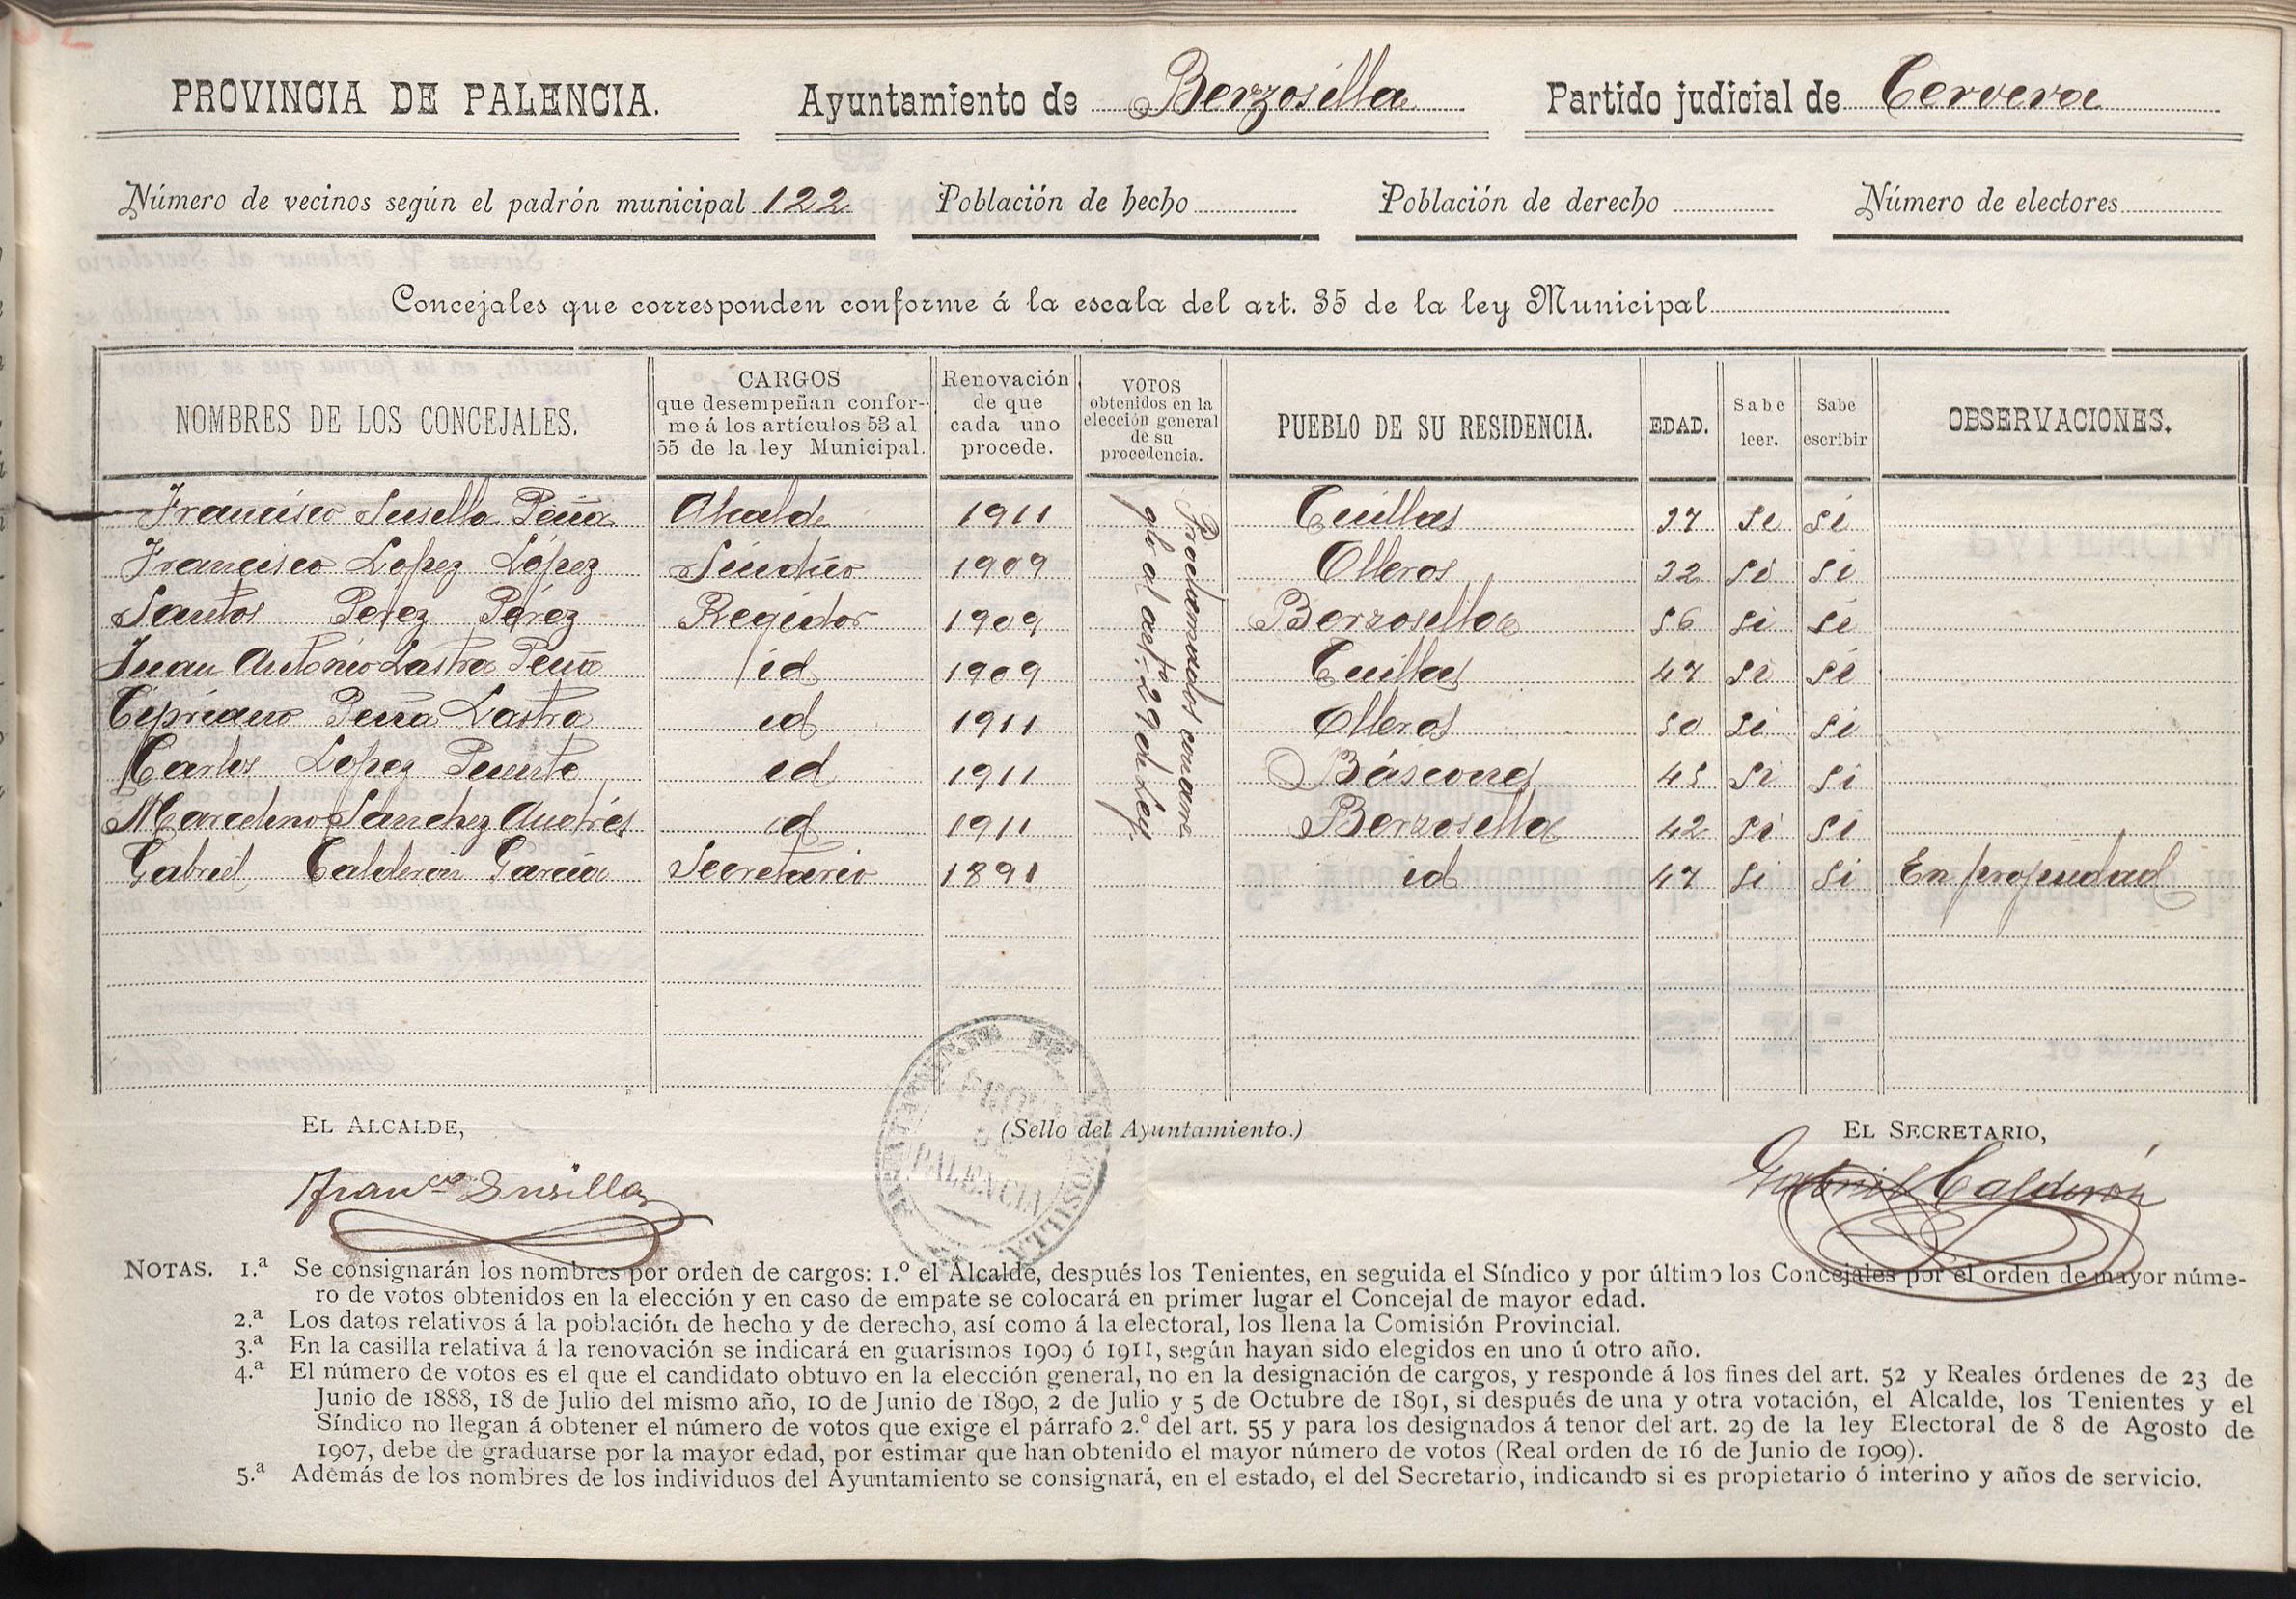 PROVINCIA DE PALENCIA. Ayuntamiento de Berzosilla Partido judicial de Cervera
Número de vecinos según el padrón municipal 122 Población de hecho Población de derecho Número de electores
Concejales que corresponden conforme á la escala del art. 35 de la ley Municipal
NOMBRES DE LOS CONCEJALES. CARGOS que desempeñan conforme á los artículos 53 al 55 de la ley Municipal. Renovación de que cada uno procede. VOTOS obtenidos en la elección general de su procedencia. PUEBLO DE SU RESIDENCIA. EDAD. Sabe leer. Sabe escribir OBSERVACIONES.
Francisco Susilla Peña Alcalde 1911 Cuillas 37 Si Si
Francisco Lopez López Síndico 1909 Olleros 32 Si Si
Santos Perez Pérez Regidor 1909 Berzosilla 56 Si Si
Juan Antonio Lastra Peña id 1909 Cuillas 47 Si Si
Cipriano Peña Lastra id 1911 Olleros 50 Si Si
Carlos Lopez Puente id 1911 Báscones 45 Si Si
Marcelino Sánchez Andrés id 1911 Berzosilla 42 Si Si
Gabriel Calderón García Secretario 1891 id 47 Si Si En propiedad
Proclamados con arre
glo al artº 29 de Ley
EL ALCALDE, (Sello del Ayuntamiento.) EL SECRETARIO,
Franco Susilla Gabriel Calderón
AYUNTAMIENTO DE BERZOSILLA
PROVª DE PALENCIA
NOTAS. 1.ª Se consignarán los nombres por orden de cargos: 1.º el Alcalde, después los Tenientes, en seguida el Síndico y por último los Concejales por el orden de mayor núme-
ro de votos obtenidos en la elección y en caso de empate se colocará en primer lugar el Concejal de mayor edad.
2.ª Los datos relativos á la población de hecho y de derecho, así como á la electoral, los llena la Comisión Provincial.
3.ª En la casilla relativa á la renovación se indicará en guarismos 1909 ó 1911, según hayan sido elegidos en uno ú otro año.
4.ª El número de votos es el que el candidato obtuvo en la elección general, no en la designación de cargos, y responde á los fines del art. 52 y Reales órdenes de 23 de
Junio de 1888, 18 de Julio del mismo año, 10 de Junio de 1890, 2 de Julio y 5 de Octubre de 1891, si después de una y otra votación, el Alcalde, los Tenientes y el
Síndico no llegan á obtener el número de votos que exige el párrafo 2.º del art. 55 y para los designados á tenor del art. 29 de la ley Electoral de 8 de Agosto de
1907, debe de graduarse por la mayor edad, por estimar que han obtenido el mayor número de votos (Real orden de 16 de Junio de 1909).
5.ª Además de los nombres de los individuos del Ayuntamiento se consignará, en el estado, el del Secretario, indicando si es propietario ó interino y años de servicio.